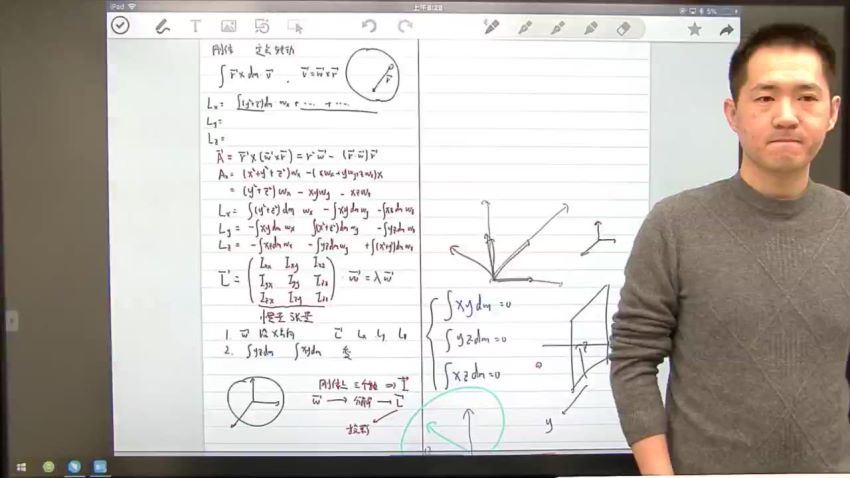 上午8:28
5%
刚体 定点转动
∫ r⃗ × dm v⃗ , v⃗ = w⃗ × r⃗
r⃗
Lx = ∫(y²+z²)dm wx + ... + ...
Ly =
Lz =
A⃗ = r⃗ × (w⃗ × r⃗) = r² w⃗ - (r⃗·w⃗) r⃗
Ax = (x²+y²+z²)wx - (xwx+ywy+zwz)x
= (y²+z²)wx - xywy - xzwz
Lx = ∫(y²+z²)dm wx - ∫xydm wy - ∫xzdm wz
Ly = -∫xydm wx ∫(x²+z²)dm wy - ∫yzdm wz
Lz = -∫xzdm wx - ∫yzdm wy + ∫(x²+y²)dm wz
L⃗ = ( Ixx Ixy Ixz
Iyx Iyy Iyz
Izx Izy Izz ) · w⃗ = λ w⃗
惯量张量
1. w⃗ 沿 x方向 L⃗ Lx Ly Lz
2. ∫yzdm ∫xydm 变
刚体上三个轴 ⇒ I⃗
w⃗ → 分解 → L⃗
∫xydm=0
∫yzdm=0
∫xzdm=0
z
y